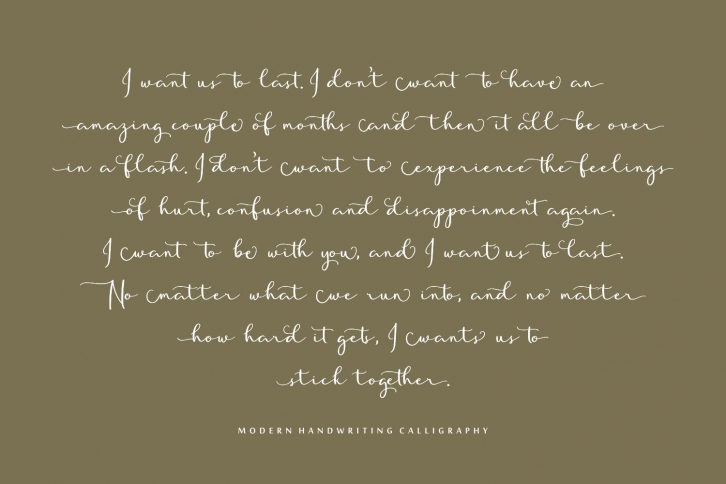 I want us to last. I don't want to have an
amazing couple of months and then it all be over
in a flash. I don't want to experience the feelings
of hurt, confusion and disappoinment again.
I want to be with you, and I want us to last.
No matter what we run into, and no matter
how hard it gets, I wants us to
stick together.
MODERN HANDWRITING CALLIGRAPHY